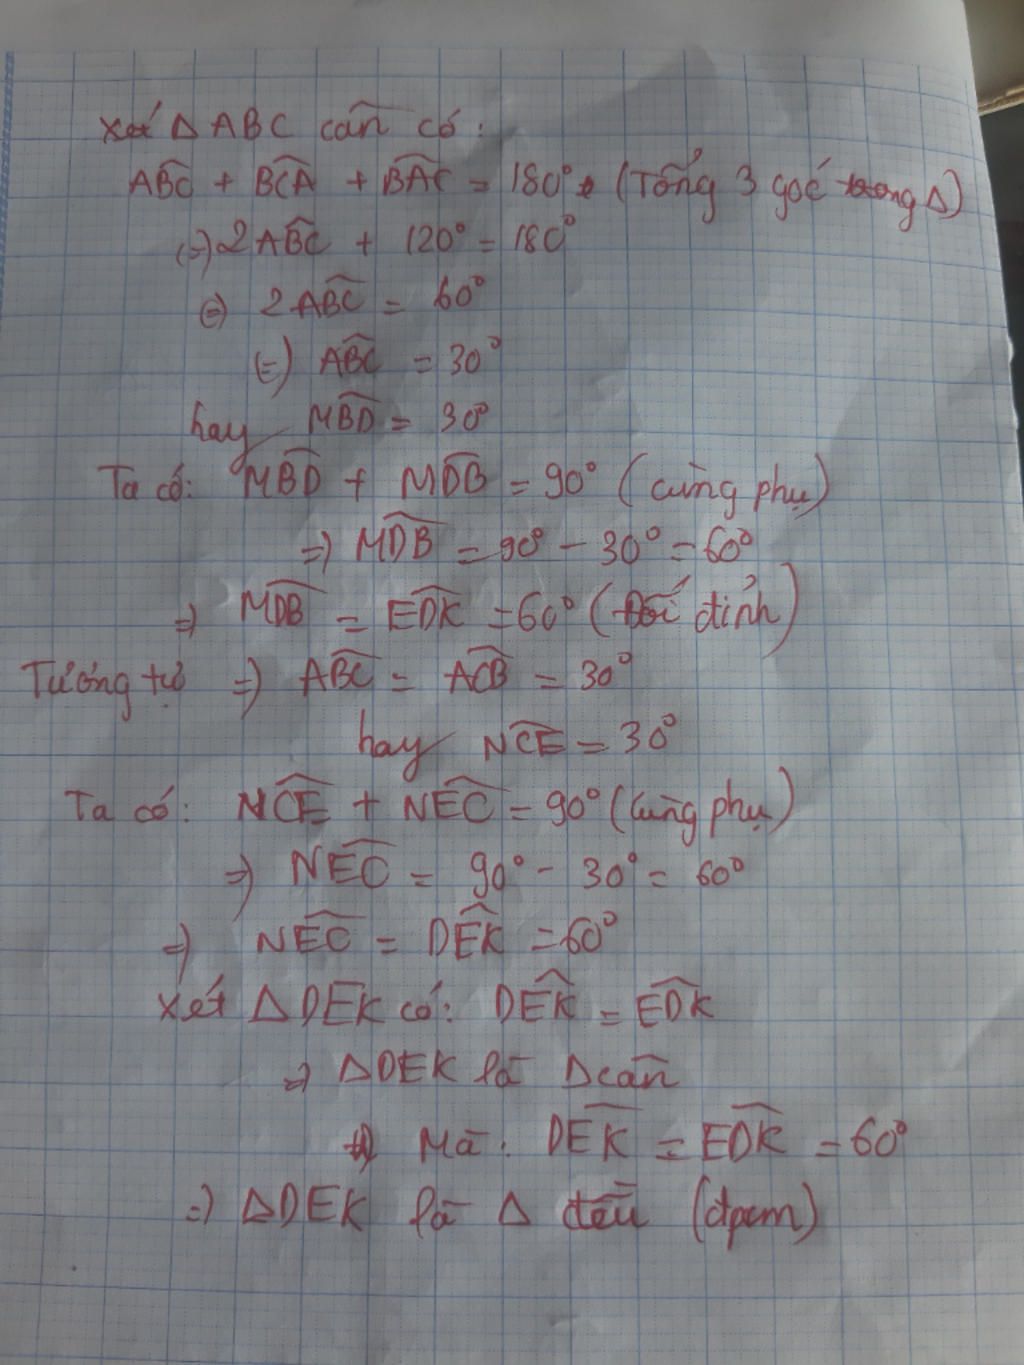 Xét Δ ABC cân có:
ABC + BCA + BAC = 180° (Tổng 3 góc trong Δ)
(=) 2ABC + 120° = 180°
(=) 2ABC = 60°
(=) ABC = 30°
hay MBD = 30°
Ta có: MBD + MDB = 90° (cùng phụ)
=) MDB = 90° - 30° = 60°
=) MDB = EDK = 60° (Đối đỉnh)
Tương tự =) ABC = ACB = 30°
hay NCE = 30°
Ta có: NCE + NEC = 90° (cùng phụ)
=) NEC = 90° - 30° = 60°
=) NEC = DEK = 60°
Xét ΔDEK có: DEK = EDK
=) ΔDEK là Δ cân
Mà: DEK = EDK = 60°
=) ΔDEK là Δ đều (đpcm)